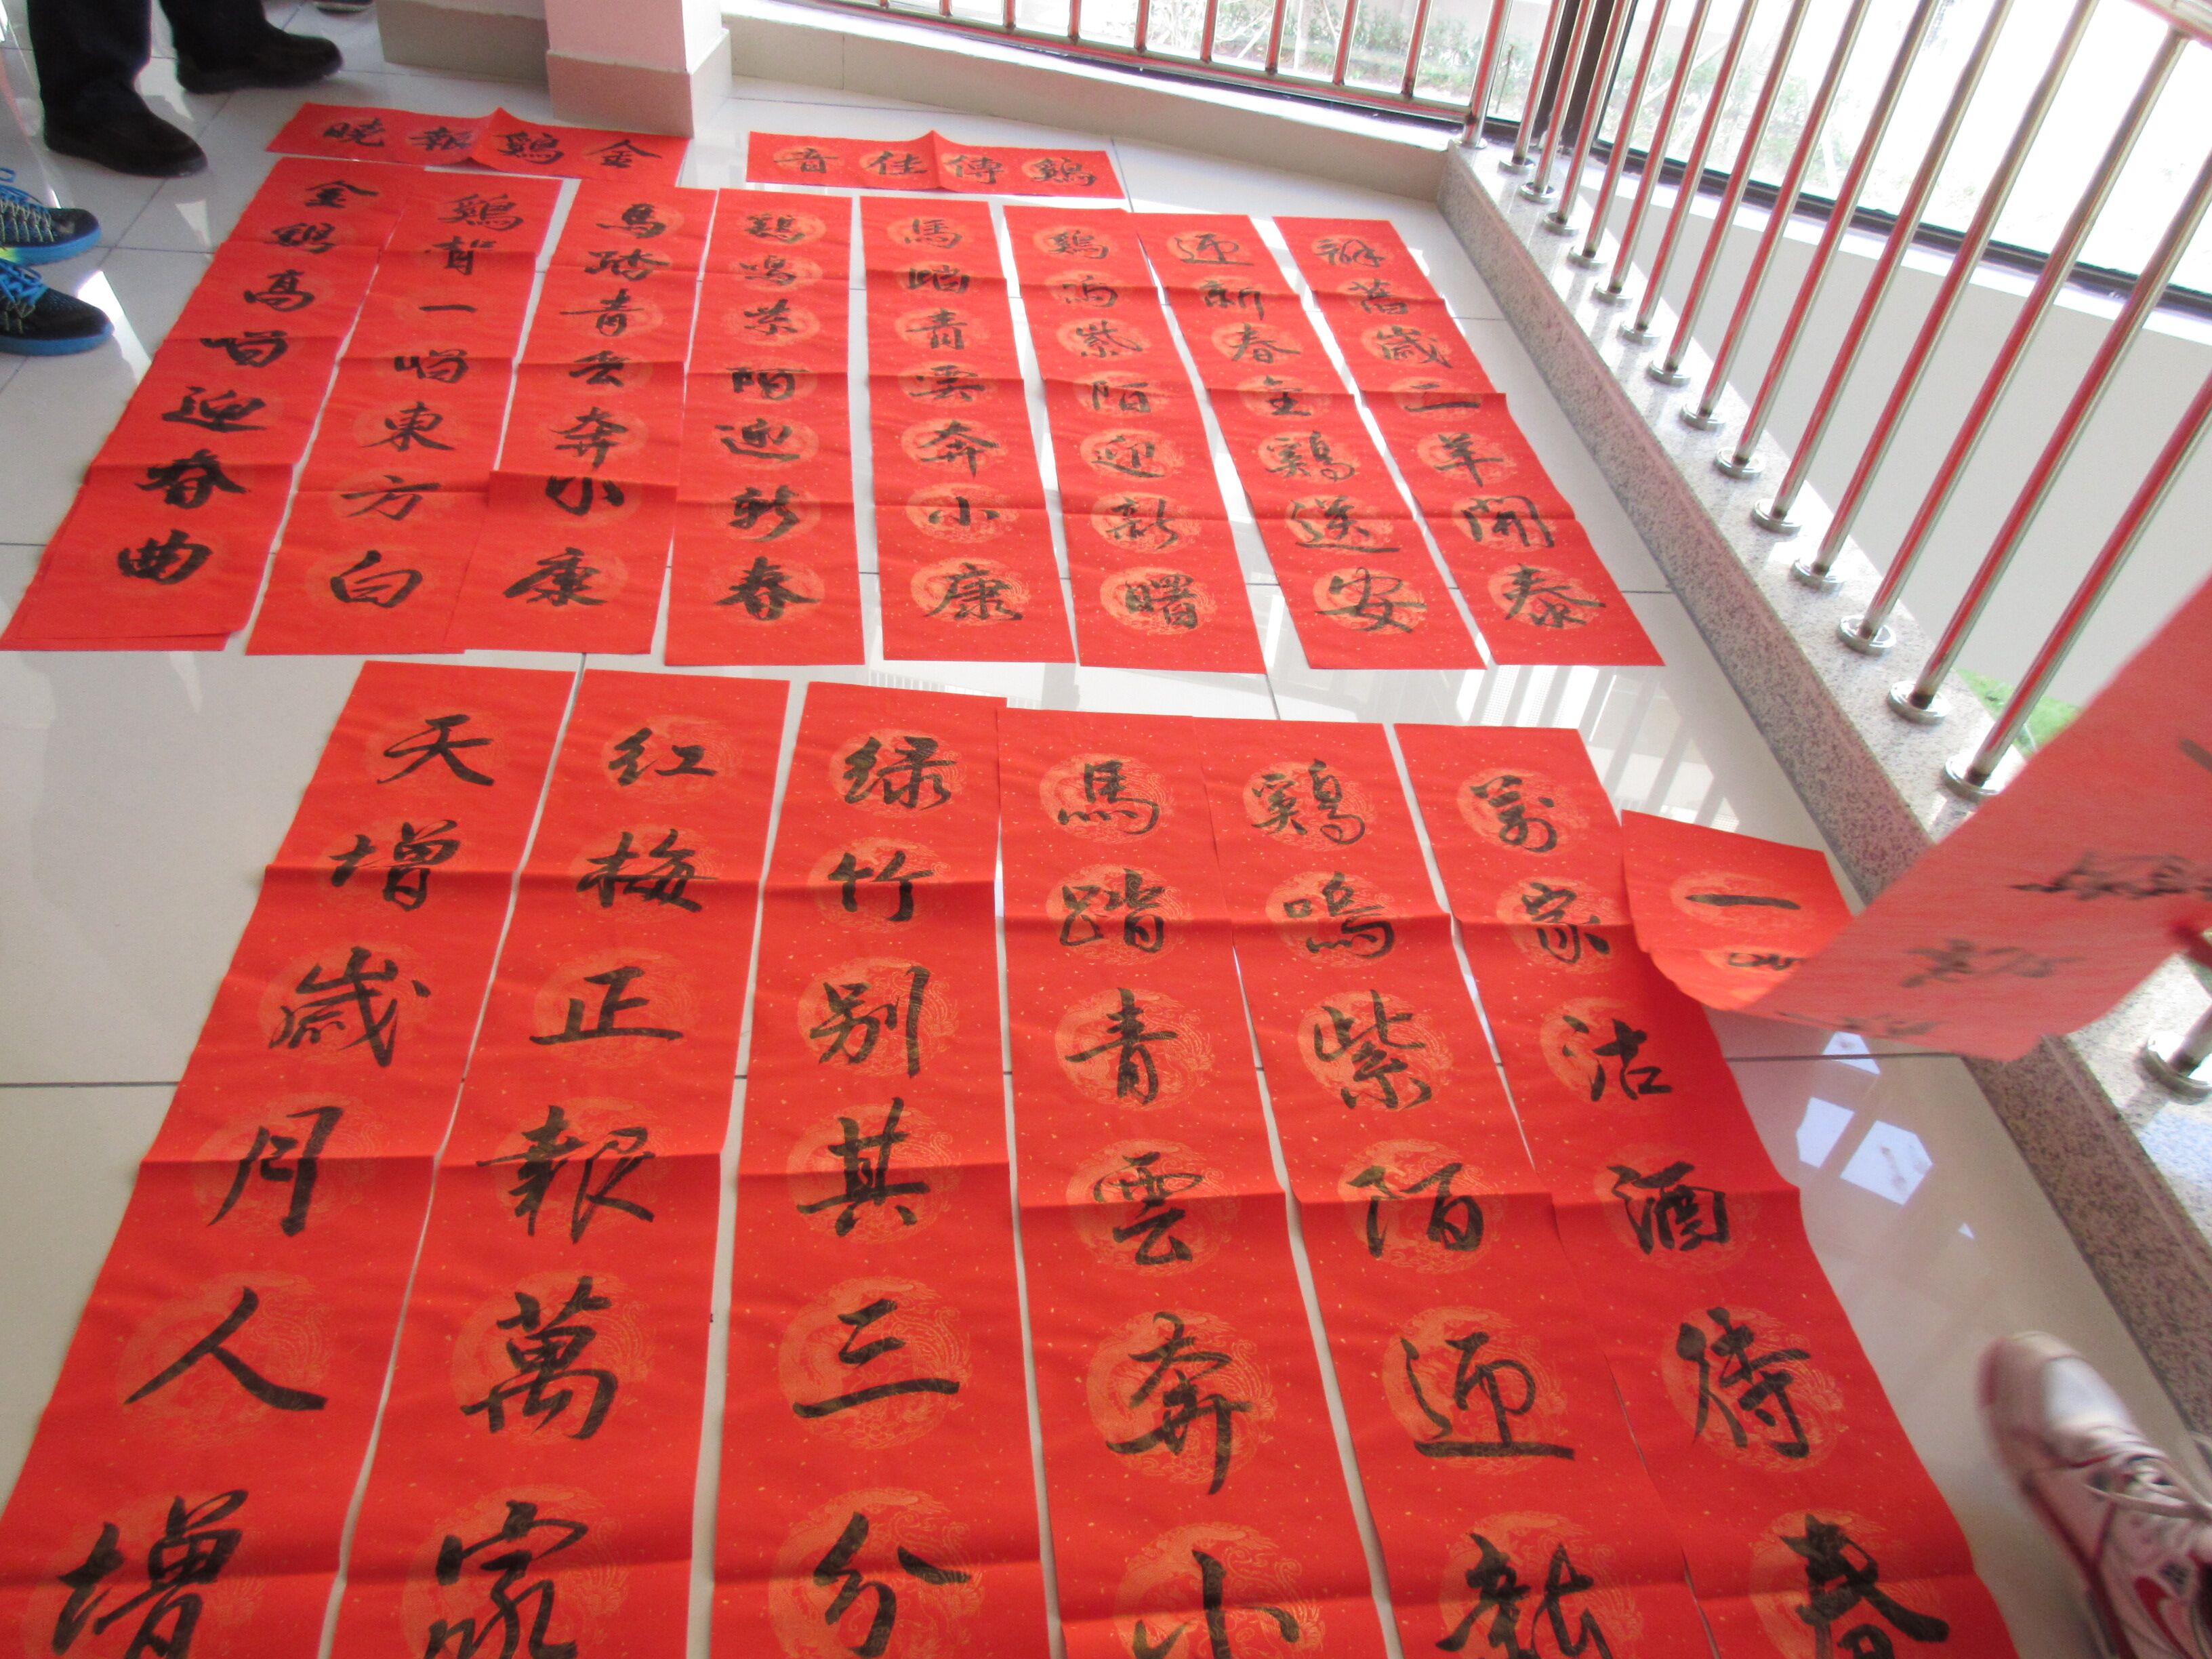 曉報鷄金
音佳傳鷄
金鷄高唱迎春曲
鷄唱東方白
馬踏青雲奔小康
鷄鳴紫陌迎新春
馬踏青雲奔小康
鷄鳴紫陌迎新曙
迎新春金鷄送安
辭舊歲三羊開泰
天增歲月人增
红梅正報萬家
绿竹别其三分
馬踏青雲奔小
鷄鳴紫陌迎新
萬家沽酒待春
一